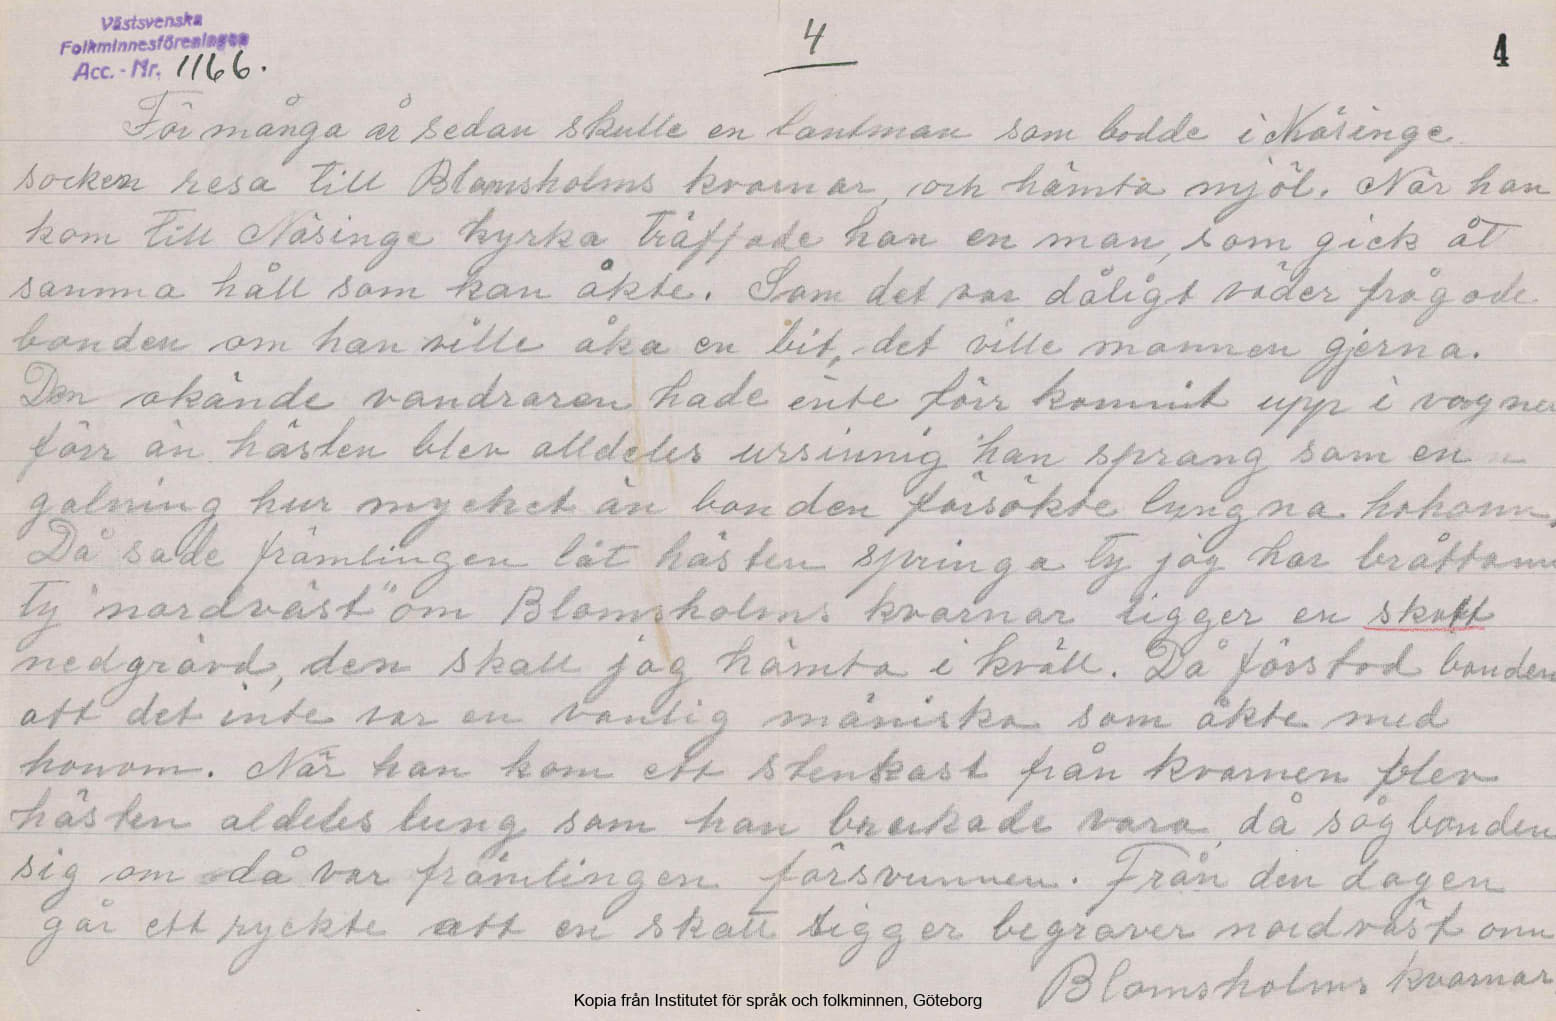 Västsvenska
Folkminnesföreningen
Acc. - Nr. 1166.
4
4
För många år sedan skulle en lantman som bodde i Näsinge
socken resa till Blomsholms kvarnar, och hämta mjöl. När han
kom till Näsinge kyrka träffade han en man, som gick åt
samma håll som han åkte. Som det var dåligt väder frågade
bonden om han ville åka en bit, det ville mannen gjerna.
Den okände vandraren hade inte förr kommit upp i vagnen
förr än hästen blev alldeles ursinnig han sprang som en
galning hur mycket än bonden försökte lungna hohonn.
Då sade främlingen låt hästen springa ty jag har bråttom
ty "nordväst" om Blomsholms kvarnar ligger en skatt
nedgrävd, den skall jag hämta i kväll. Då förstod bonden
att det inte var en vanlig mäniska som åkte med
honom. När han kom ett stenkast från kvarnen blev
hästen aldeles lung som han brukade vara, då såg bonden
sig om då var främlingen försvunnen. Från den dagen
går ett ryckte att en skatt ligger begraver nordväst om
Blomsholms kvarnar
Kopia från Institutet för språk och folkminnen, Göteborg